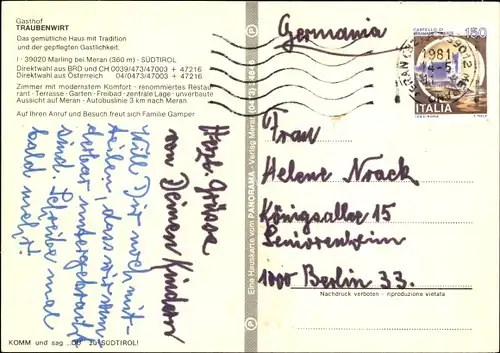 Gasthof
TRAUBENWIRT
Das gemütliche Haus mit Tradition
und der gepflegten Gastlichkeit.
I - 39020 Marling bei Meran (360 m) - SÜDTIROL
Direktwahl aus BRD und CH 0039/473/47003 + 47216
Direktwahl aus Österreich 04/0473/47003 + 47216
Zimmer mit modernstem Komfort - renommiertes Restau-
rant - Terrasse - Garten - Freibad - zentrale Lage - unverbaute
Aussicht auf Meran - Autobuslinie 3 km nach Meran
Auf Ihren Anruf und Besuch freut sich Familie Gamper
Herzl. Grüsse
von Deinen Kindern
Will Dir noch mit-
teilen, dass wir wun-
derbar untergebracht
sind. Schreibe mal
bald mehr!
KOMM und sag JA zu SÜDTIROL!
Eine Hauskarte vom PANORAMA-Verlag Meran
Germania
CASTELLO DI
150
1981
ITALIA
Frau
Helene Noack
Königsallee 15
Seniorenheim
1000 Berlin 33.
Nachdruck verboten - riproduzione vietata